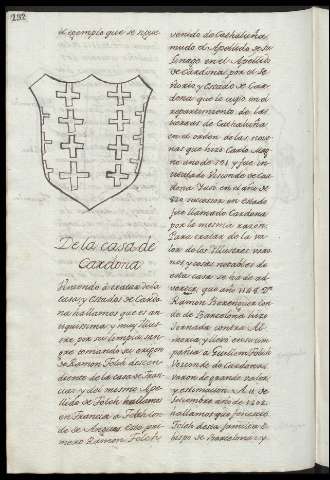 232
el exemplo que se sigue
De la casa de
Cardona
Viniendo à tratar de la
Casa, y Estados de Cardo
na hallamos que es an
tiquissima y muy Illus-
tre, por su limpia san
gre tomando su origen
de Ramon Folch descen
diente de la casa de Fran
cia: y del mesmo Ape
llido de Folch hallamos
en Francia a Folch Con
de de Angeus. Este pri
mero Ramon Folch
venido de Cathaluña
mudo el Apellido de su
Linage en el Apellido
de Cardona, por el Se
ñorio, y Estado de Car
dona que le cupo en el
repartimiento de las
tierras de Cathaluña
en el orden de las perso
nas que hizo Carlo Mag
no año de 791 y fue in
titulado Visconde de Car
dona
en el año de
successor en estado
fue llamado Cardona
por la mesma razon.
Para tratar de la va
lor de los Illustres varo
nes y cosas notables de
esta casa se ha de ad
vertir, que año 1147 Dn
Ramon Berenguer Con
de de Barcelona hizo
Jornada contra Al
meria, y llevo en su com
pañia a Guillem Folch
Visconde de Cardona,
varon de grande valor
y estimacion. A 11 de
Setiembre año de
hallamos que
Folch desta familia O
bispo de Barcelona, y